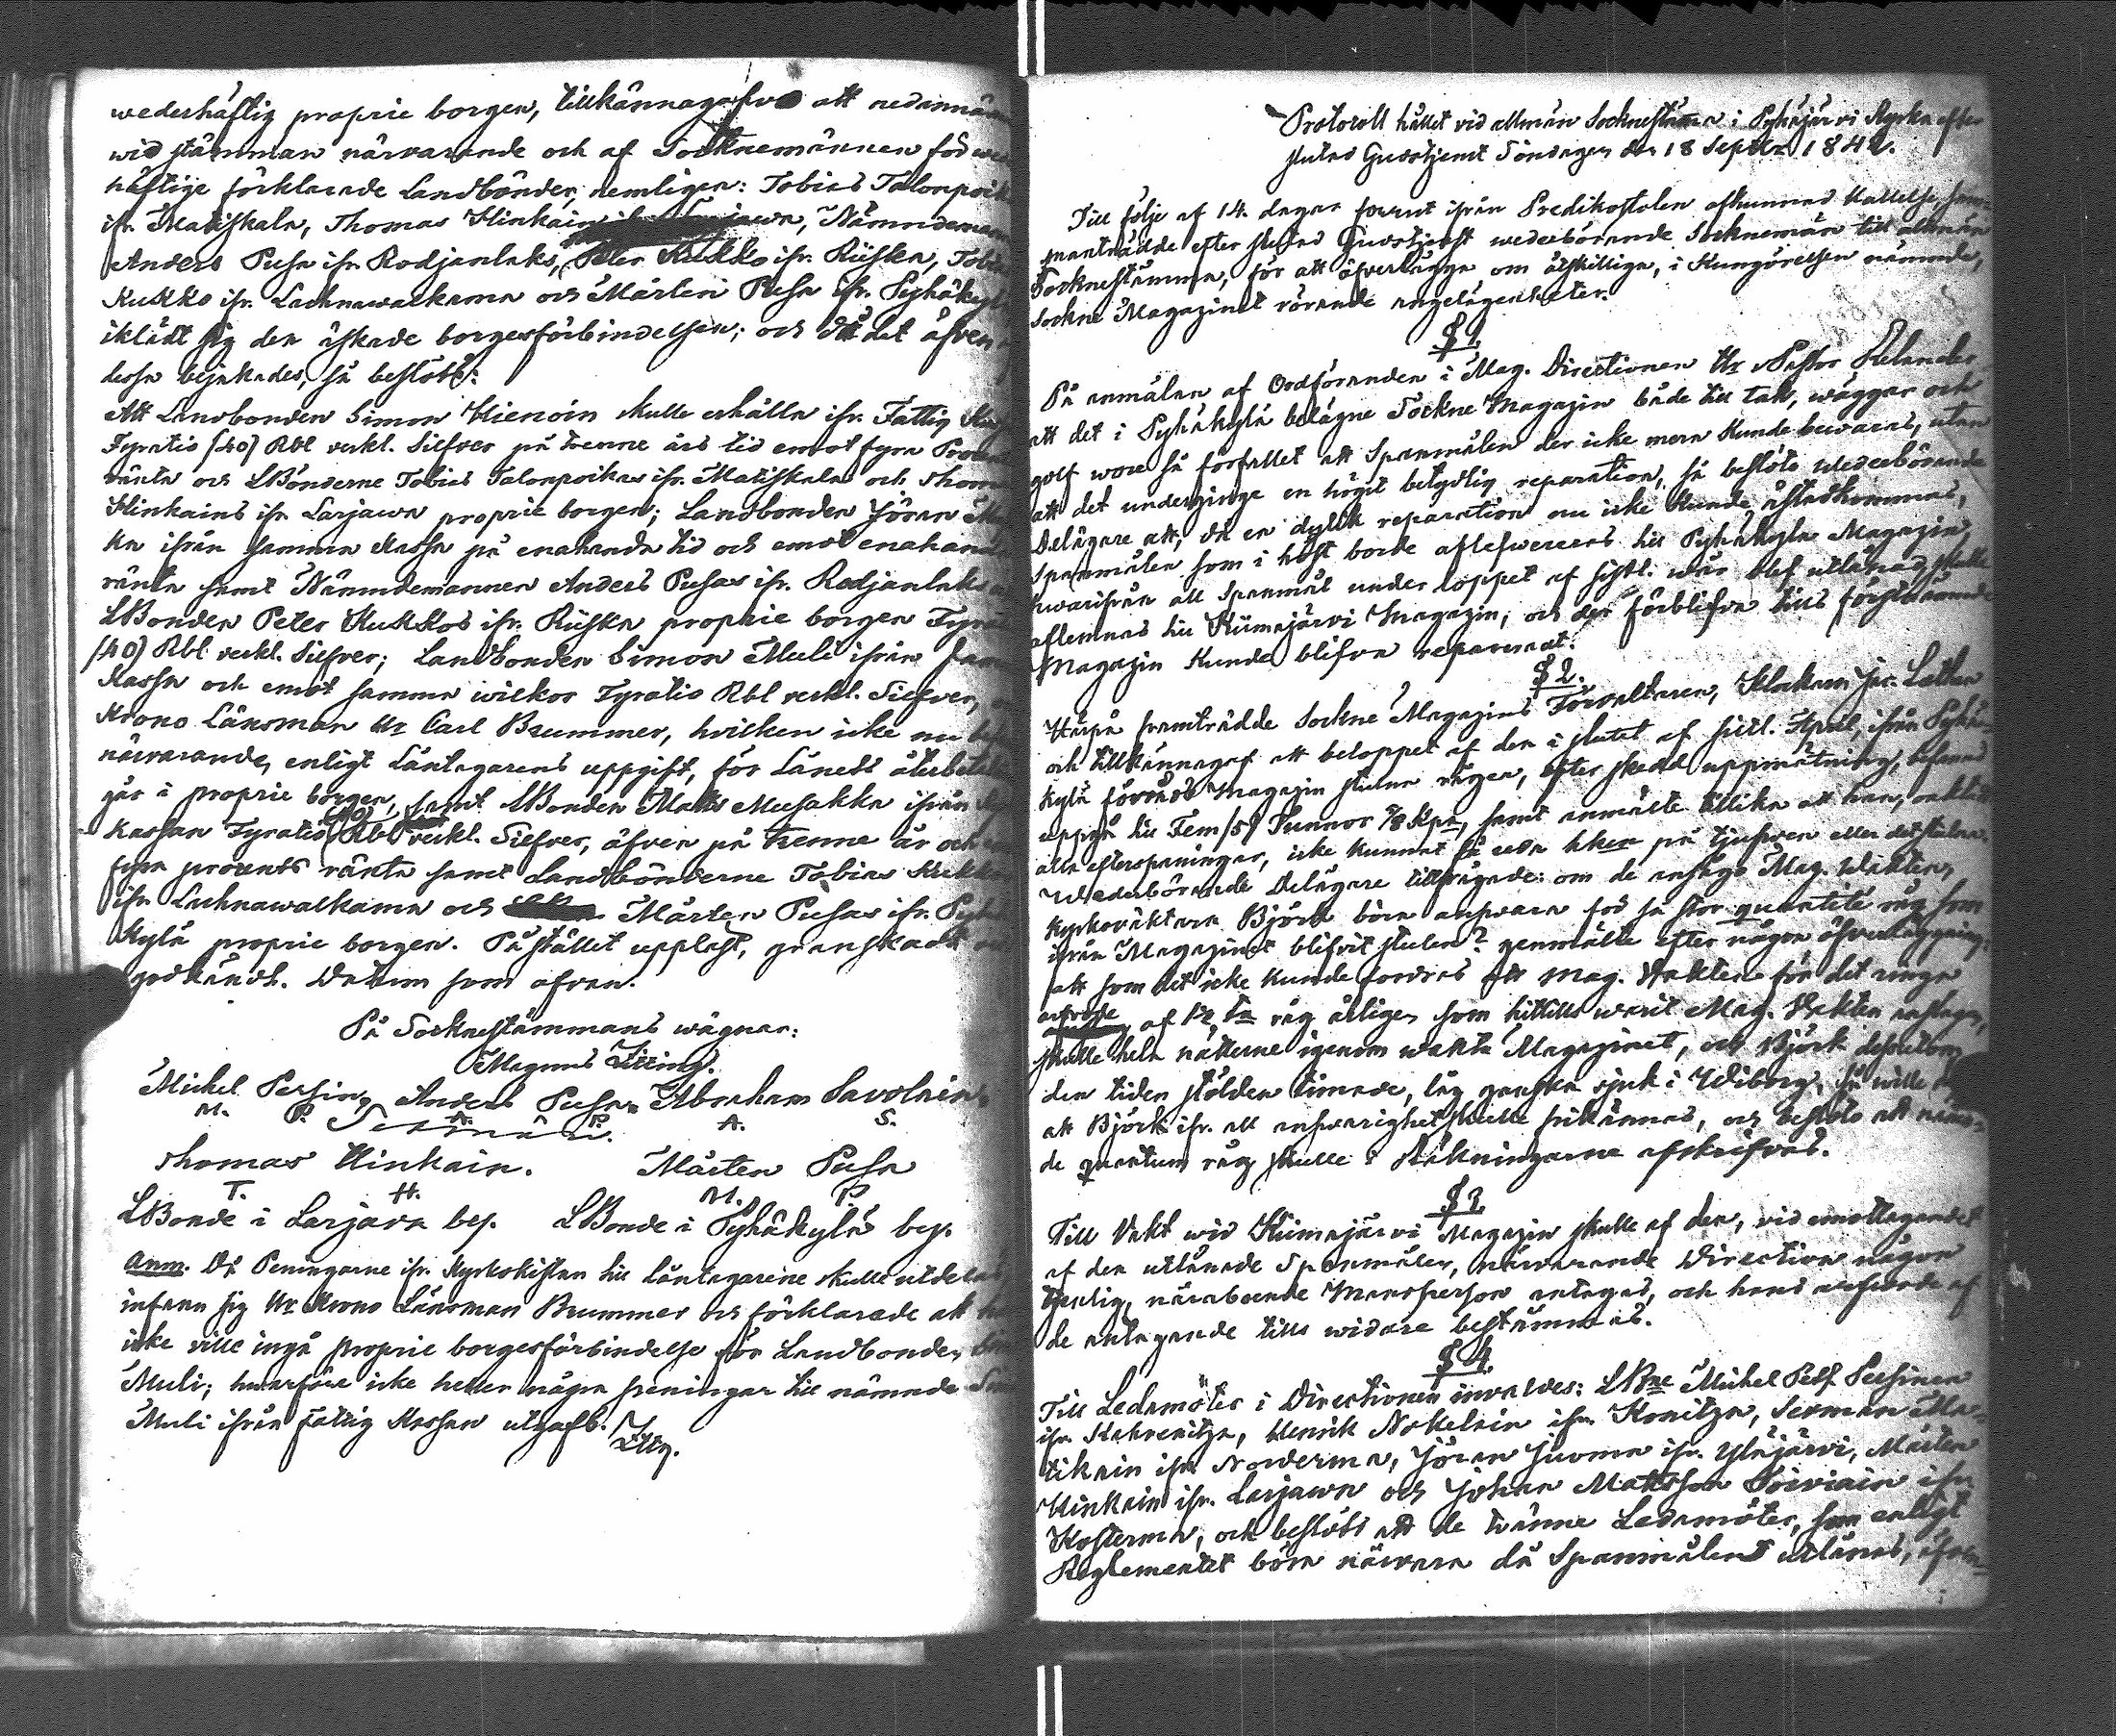 wederhäftig proprie borgen, tillkännagafvo att nedannäm
wid stämman närvarande och af Socknemännen för we
häftige förklarade Landbönder, nemligen: Tobias Talonpoik
ifr. Matiskala, Thomas Hinkain, Nämndeman
Anders Pusa ifr. Rodjanlaks, Peter Kukko ifr. Riiska, Tobi
Kukko ifr. Lachnawalkama och Mårten Pusa ifr. Pyhäkyl
iklädt sig den äskade borgesförbindelsen; och då det äfven
dessa bejakades, så beslöts:
Att Landbonden Simon Hienoin skulle erhålla ifr. Fattig
Fyratio (40) Rbl verkl. Silfver på trenne års tid emot fyra Pro
ränta och LBönderne Tobias Talonpoikas ifr. Matiskala och Thom
Hinkains ifr. Larjawa proprie borgen; Landbonden Jöran
ka ifrån samma Kassa på enahanda tid och emot enahan
ränta samt Nämndemannen Anders Pusas ifr. Rodjanlaks
LBonden Peter Kukkos ifr. Riiska proprie borgen Fyra
(40) Rbl verkl. Silfver; Landbonden Simon Muli ifrån sam
Kassa och emot samma wilkor Fyratio Rbl verkl. Silfver,
Krono Länsman Hr Carl Brummer, hvilken icke nu
närvarande, enligt Låntagarens uppgift, för Lånets återbetal
går i proprie borgen, samt LBonden Matts Musakka ifrån
Kassan Fyratio (40) Rbl verkl. Silfver, äfven på trenne år och
fyra procents ränta samt Landbönderne Tobias Kukk
ifr. Lachnawalkama och Mårten Pusas ifr. Pyhä
kylä proprie borgen. På stället uppläst, granskadt
godkändt. Datum som ofvan.
På Socknestämmans wägnar:
Magnus
Michel Persin, Anders Pusa, Abraham Savolain,
M. P. A. P. A. S.
Thomas Hinkain. Mårten Pusa
T. H. M. P.
LBonde i Larjava by. LBonde i Pyhäkylä by.
Anm. Då Peningarne ifr. Kyrkokistan till låntagarene skulle utdelas
infann sig Hr Krono Länsman Brummer och förklarade att
icke ville ingå proprie borgesförbindelse för Landbonden
Muli; hwarföre icke heller några peningar till nämnde
Muli ifrån Fattig Kassan utgafs.
Protocoll hållet vid allmän Socknestämma i Pyhäjärvi Kyrka efter
slutad Gudstjenst Söndagen den 18 Septber 1842.
Till följe af 14. dagar förut ifrån Predikostolen afkunnad Kallelse, sam-
manträdde efter slutad Gudstjenst wederbörande Socknemän till allmän
Socknestämma, för att öfverlägga om åtskilliga, i Kungörelsen nämnde,
Sockne Magazinet rörande angelägenheter.
§ 1.
På anmälan af Ordföranden i Mag. Directionen Hr Pastor Relander
att det i Pyhäkylä belägne Sockne Magazin både till tak, wäggar och
golf wore så förfallet att Spanmålen der icke mera kunde bewaras, utan
att det underginge en högst betydlig reparation, så beslöto wederbörande
Delägare att, då en dylik reparation nu icke kunde åstadkommas,
Spanmålen som i höst borde aflefwereras till Pyhäkylä Magazin,
hwarifrån all Spanmål under loppet af sistl. wår blef utlånad, skulle
aflemnas till Kiimajärvi Magazin, och der förblifva tills förstnämnde
Magazin kunde blifva reparerat.
§ 2.
Härpå framträdde Sockne Magazins Förvaltaren, Klockaren Jac. Lethen
och tillkännagaf att beloppet af den i slutet af sistl. April, ifrån Pyhä-
kylä förråds Magazin stulna rågen, efter skedd uppmätning, befann
uppgå till Fem (5) Tunnor 7/8 kpr, samt anmälte tillika att han, oaktadt
alla efterspaningar, icke kunnat få reda hken på tjufven eller det stulna.
Wederbörande Delägare tillfrågade: om de ansågo Mag. Wakten,
Kyrkoväktaren Björk böra answara för så stor quantité råg som
ifrån Magazinet blifvit stulen? genmälte efter någon öfverläggning,
att som det icke kunde fordras att Mag. Wakten för det ringa
arfvode af 1/2 Tn råg årligen som hittills warit Mag. Wakten anslagen,
skulle hela nätterne igenom wakta Magazinet, och Björk dessutom
den tiden stölden timade, låg ganska sjuk i Wiborg, så wille de
att Björk ifr. all answarighet skulle frikännas, och beslöto att nämn-
de quantum råg skulle i Räkningarne afskrifvas.
§ 3.
Till Vakt wid Kiimajärvi Magazin skulle af den, vid emottagandet
af den utlånade Spanmålen, närvarande Direction någon
tjenlig, näraboende Mansperson antagas, och hans arfvode af
de antagande tills widare bestämmas.
§ 4.
Till Ledamöter i Directionen invaldes: LBne Michel Pehf. Pessinen
ifr. Kahvenitza, Henrik Nokelain ifr. Konitza, Sexman Ma-
tikain ifr. Noiderma, Jöran Juoma ifr. Yläjärvi, Mårten
Hinkain ifr. Larjawa och Johan Mattsson Toiviain ifr.
Kosterma, och beslöts att de twänne Ledamöter, som enligt
Reglementet böra närvara då Spanmålens utlånas, äfven